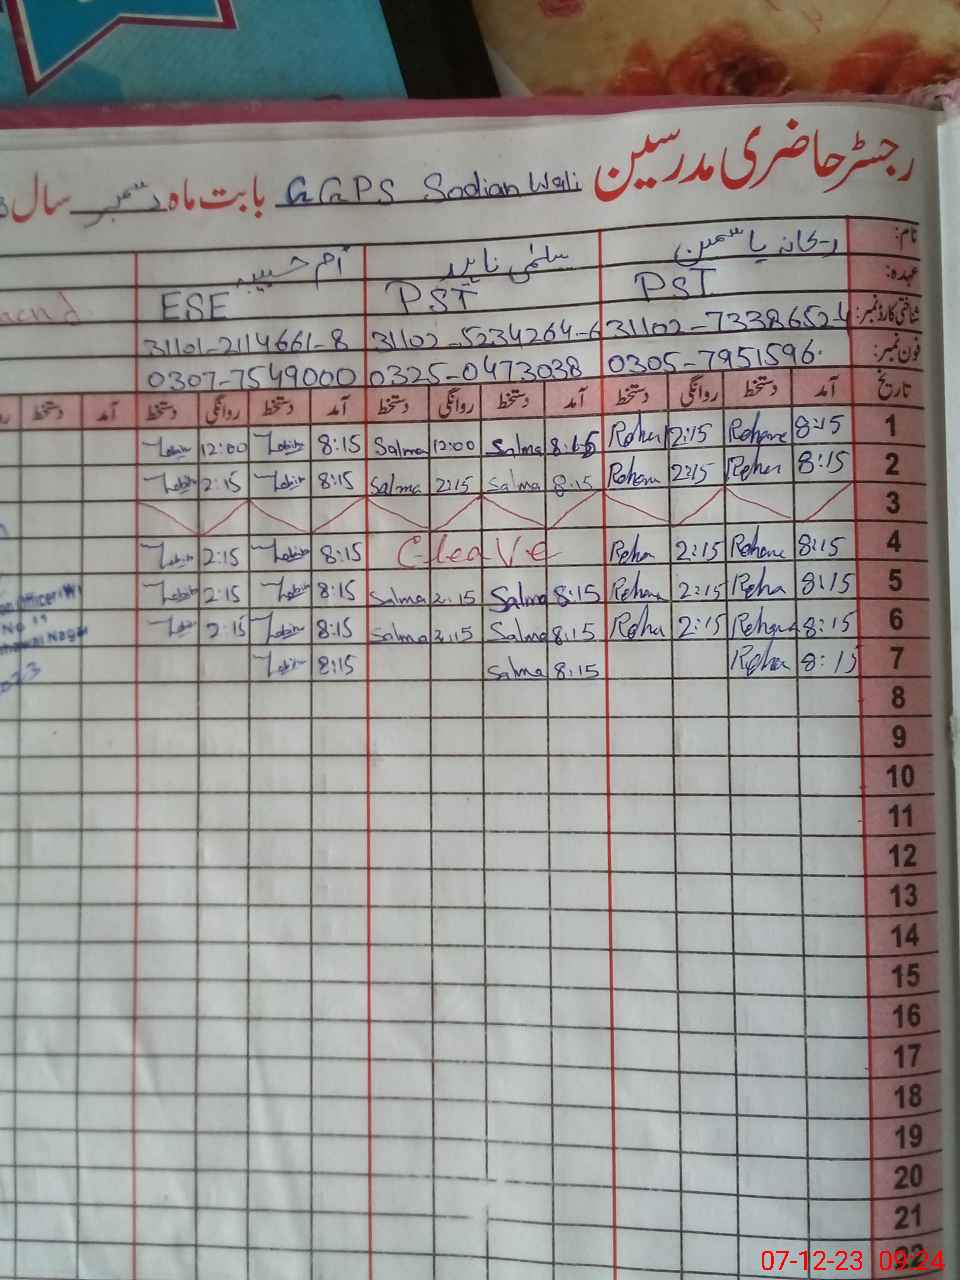 رجسٹر حاضری مدرسین GGPS Sadian Wali بابت ماہ دسمبر سال
نام: ریحانہ یاسمین سلمٰی ناہید اُم حبیبہ
عہدہ: PST PST ESE
شناختی کارڈ نمبر: 31102-7338652-4 31102-5234264-6 31101-2114661-8
فون نمبر: 0305-7951596 0325-0473038 0307-7549000
تاریخ آمد دستخط روانگی دستخط آمد دستخط روانگی دستخط آمد دستخط روانگی دستخط آمد دستخط
1 8:15 Rehana 2:15 Reha 8:15 Salma 12:00 Salma 8:15 12:00
2 8:15 Reha 2:15 Rehana 8:15 Salma 2:15 Salma 8:15 2:15
3
4 8:15 Rehana 2:15 Reha C-leave 8:15 2:15
5 8:15 Rehana 2:15 Rehana 8:15 Salma 2:15 Salma 8:15 2:15
6 8:15 Rehana 2:15 Reha 8:15 Salma 2:15 Salma 8:15 2:15
7 8:15 Reha 8:15 Salma 8:15
8
9
10
11
12
13
14
15
16
17
18
19
20
21
22
07-12-23 09:24